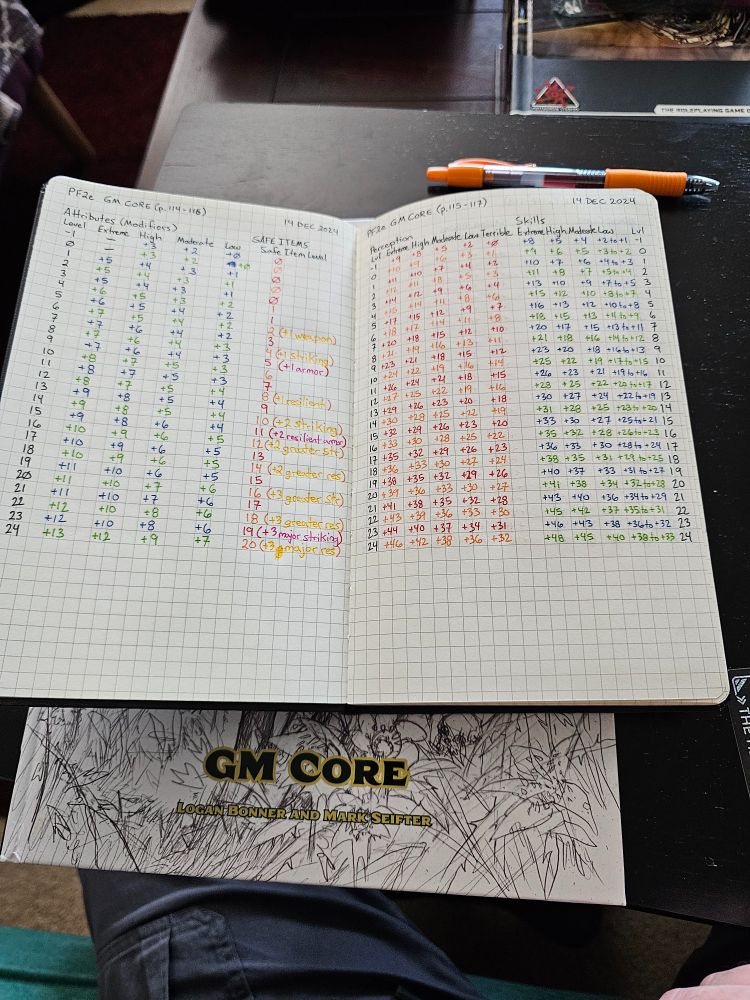 THE ROLEPLAYING GAME
PF2e GM CORE (p.114-116) 14 DEC 2024
Attributes (Modifiers) SAFE ITEMS
Level Extreme High Moderate Low Safe Item Level
-1 — +3 +2 +Ø Ø
Ø — +3 +2 +Ø Ø
1 +5 +4 +3 +1 Ø
2 +5 +4 +3 +1 Ø
3 +5 +4 +3 +1 Ø
4 +6 +5 +3 +2 1
5 +6 +5 +4 +2 1
6 +7 +5 +4 +2 2 (+1 weapon)
7 +7 +6 +4 +2 3
8 +7 +6 +4 +3 4 (+1 striking)
9 +7 +6 +4 +3 5 (+1 armor)
10 +8 +7 +5 +3 6
11 +8 +7 +5 +3 7
12 +8 +7 +5 +4 8 (+1 resilient)
13 +9 +8 +5 +4 9
14 +9 +8 +5 +4 10 (+2 striking)
15 +9 +8 +6 +4 11 (+2 resilient armor)
16 +10 +9 +6 +5 12 (+2 greater str)
17 +10 +9 +6 +5 13
18 +10 +9 +6 +5 14 (+2 greater res)
19 +11 +10 +6 +5 15
20 +11 +10 +7 +6 16 (+3 greater str)
21 +11 +10 +7 +6 17
22 +12 +10 +8 +6 18 (+3 greater res)
23 +12 +10 +8 +6 19 (+3 major striking)
24 +13 +12 +9 +7 20 (+3 major res)
PF2e GM CORE (p.115-117) 14 DEC 2024
Perception Skills
Lvl Extreme High Moderate Low Terrible Extreme High Moderate Low Lvl
-1 +9 +8 +5 +2 +Ø +8 +5 +4 +2 to +1 -1
0 +10 +9 +6 +3 +1 +9 +6 +5 +3 to +2 0
1 +11 +10 +7 +4 +2 +10 +7 +6 +4 to +3 1
2 +12 +11 +8 +5 +3 +11 +8 +7 +5 to +4 2
3 +14 +12 +9 +6 +4 +13 +10 +9 +7 to +5 3
4 +15 +14 +11 +8 +6 +15 +12 +10 +8 to +7 4
5 +17 +15 +12 +9 +7 +16 +13 +12 +10 to +8 5
6 +18 +17 +14 +11 +8 +18 +15 +13 +11 to +9 6
7 +20 +18 +15 +12 +10 +20 +17 +15 +13 to +11 7
8 +21 +19 +16 +13 +11 +21 +18 +16 +14 to +12 8
9 +23 +21 +18 +15 +12 +23 +20 +18 +16 to +13 9
10 +24 +22 +19 +16 +14 +25 +22 +19 +17 to +15 10
11 +26 +24 +21 +18 +15 +26 +23 +21 +19 to +16 11
12 +27 +25 +22 +19 +16 +28 +25 +22 +20 to +17 12
13 +29 +26 +23 +20 +18 +30 +27 +24 +22 to +19 13
14 +30 +28 +25 +22 +19 +31 +28 +25 +23 to +20 14
15 +32 +29 +26 +23 +20 +33 +30 +27 +25 to +21 15
16 +33 +30 +28 +25 +22 +35 +32 +28 +26 to +23 16
17 +35 +32 +29 +26 +23 +36 +33 +30 +28 to +24 17
18 +36 +33 +30 +27 +24 +38 +35 +31 +29 to +25 18
19 +38 +35 +32 +29 +26 +40 +37 +33 +31 to +27 19
20 +39 +36 +33 +30 +27 +41 +38 +34 +32 to +28 20
21 +41 +38 +35 +32 +28 +43 +40 +36 +34 to +29 21
22 +43 +39 +36 +33 +30 +45 +42 +37 +35 to +31 22
23 +44 +40 +37 +34 +31 +46 +43 +38 +36 to +32 23
24 +46 +42 +38 +36 +32 +48 +45 +40 +38 to +33 24
GM CORE
LOGAN BONNER AND MARK SEIFTER
THE